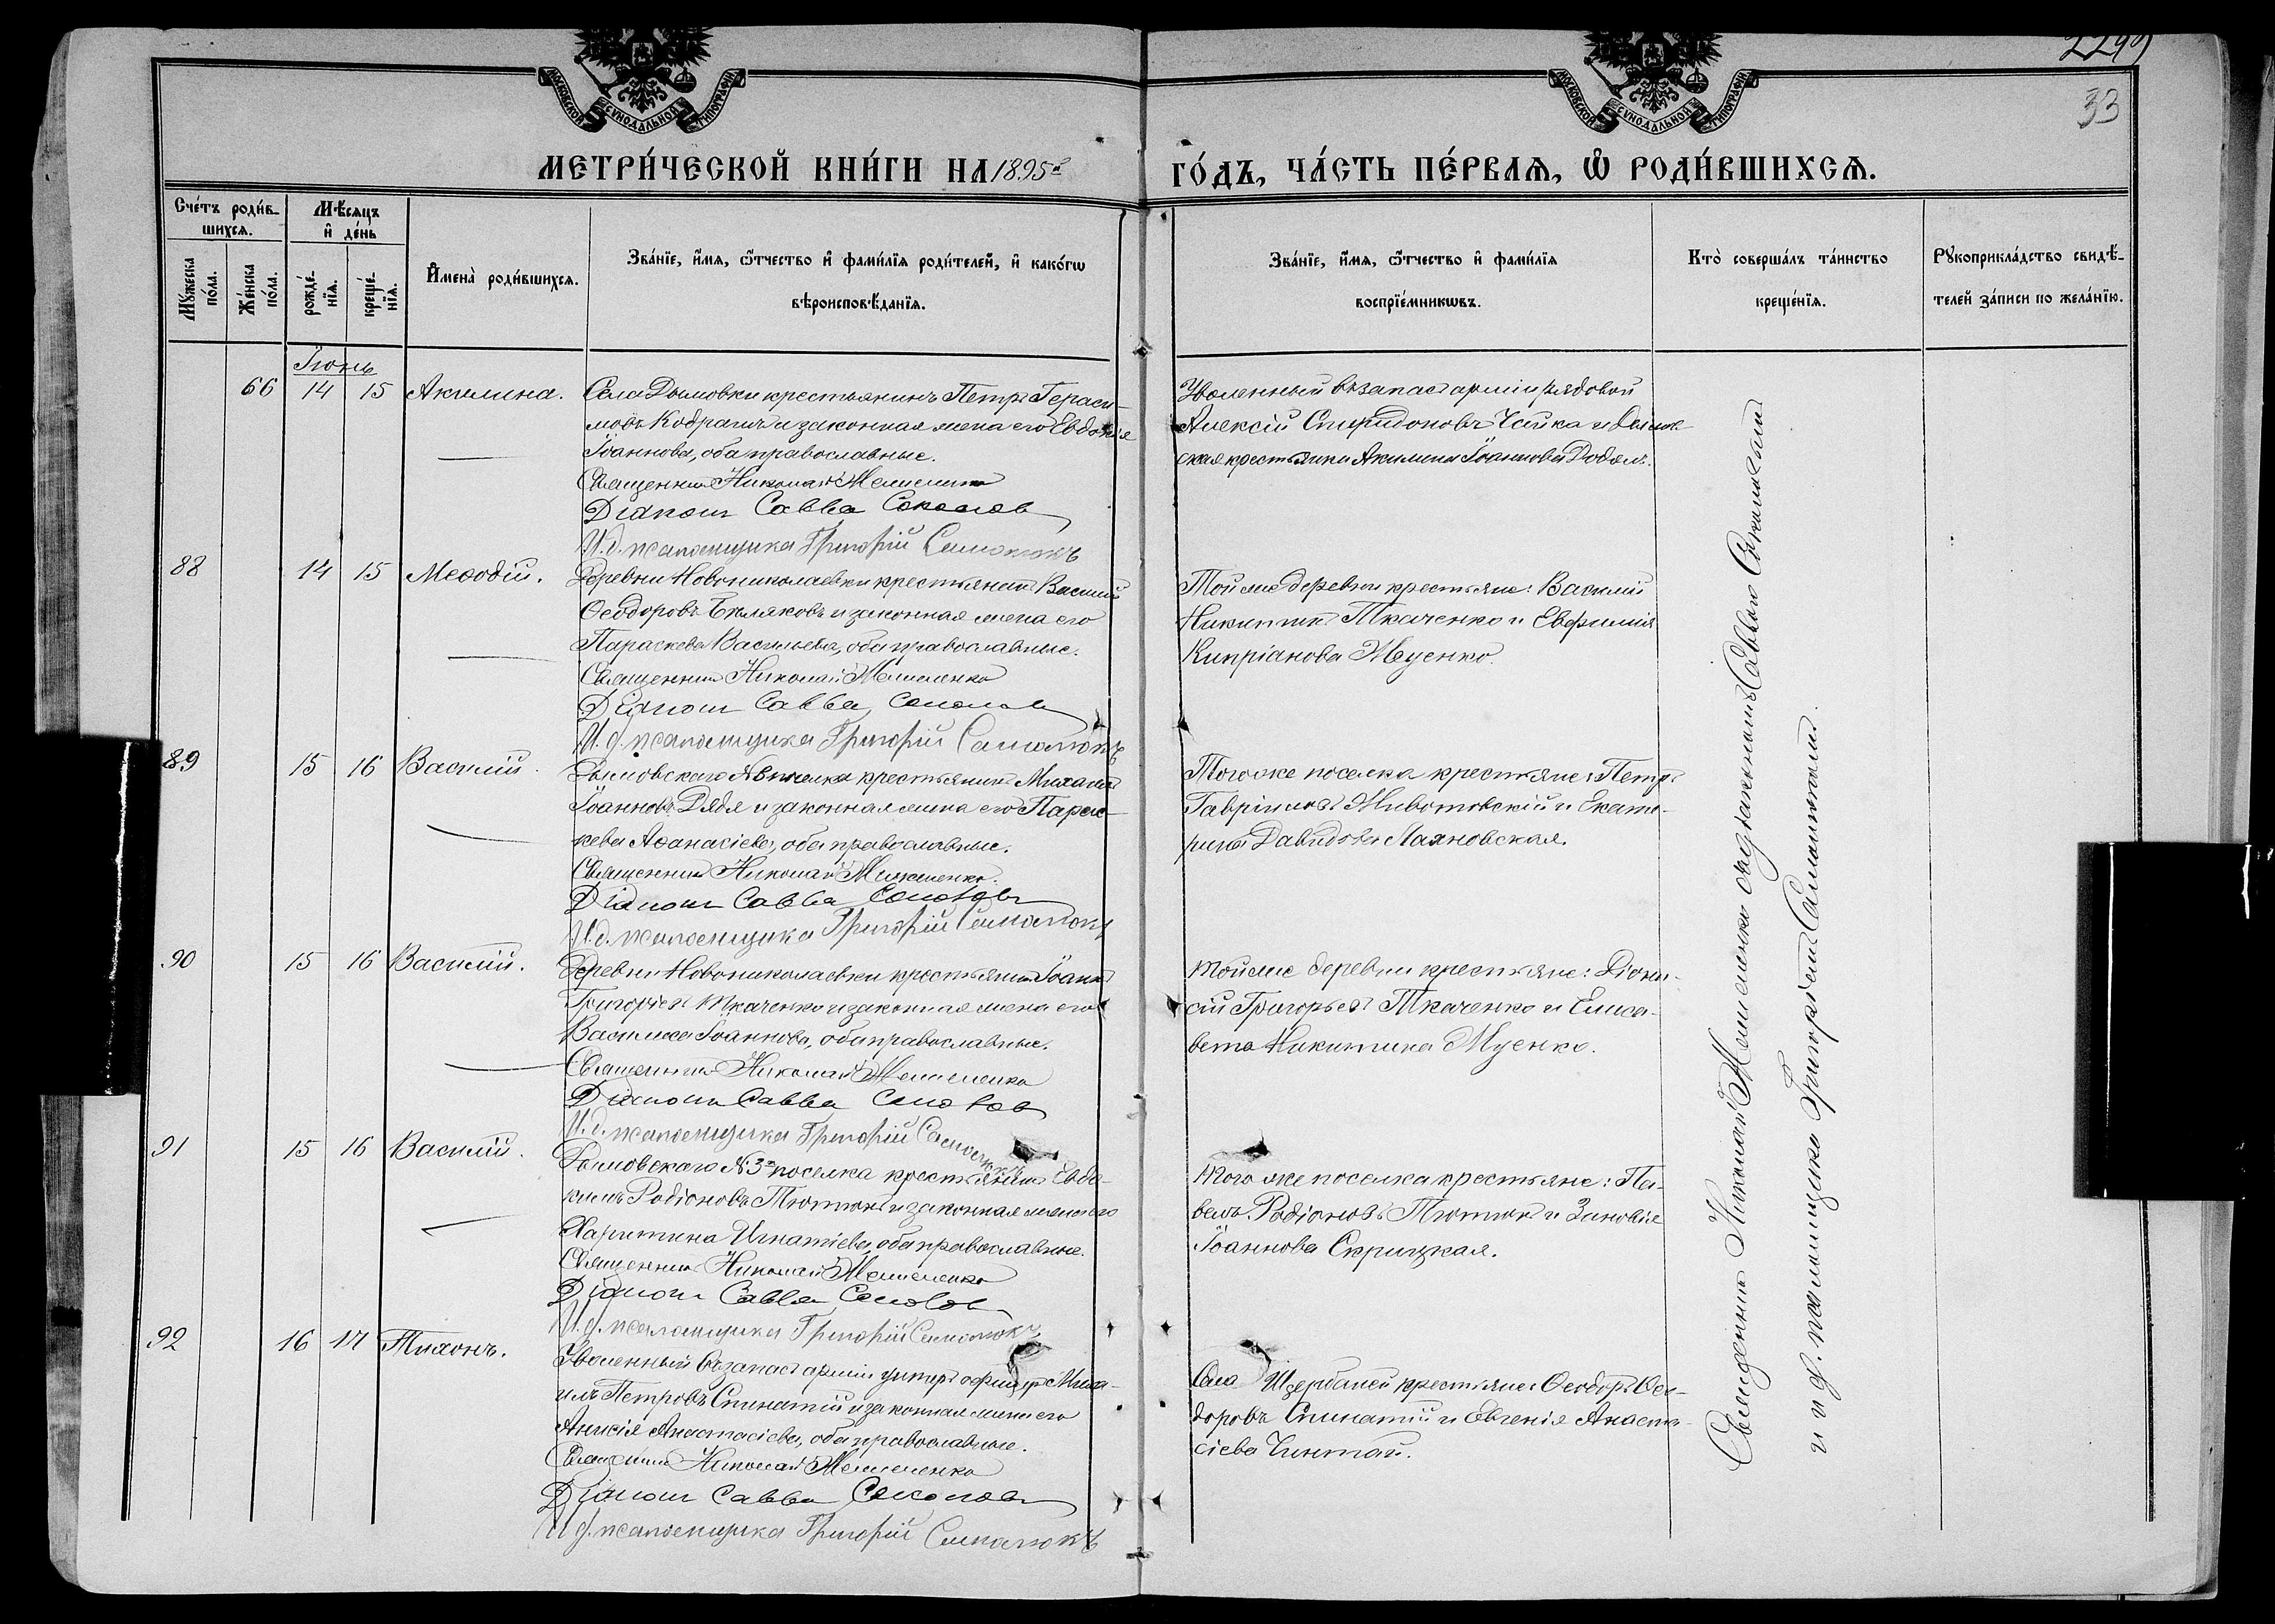 33
МЕТРИ́ЧЕСКОЙ КНИ́ГИ НА 1895й ГО́ДЪ, ЧА́СТЬ ПЕ́РВАѦ, Ѡ҆ РОДИ́ВШИХСѦ.
Сче́тъ роди́в-
шихсѧ.
Мѣ́сѧцъ
и҆ де́нь
Мꙋ́жеска
по́ла.
Же́нска
по́ла.
рожде́-
нїѧ.
креще́-
нїѧ.
И҆мена̀ роди́вшихсѧ.
Зва́нїе, и҆́мѧ, ѻ҆́тчество и҆ фами́лїѧ роди́телей, и҆ како́гѡ
вѣроисповѣ́данїѧ.
Зва́нїе, и҆́мѧ, ѻ҆́тчество и҆ фами́лїѧ
воспрїе́мникѡвъ.
Кто̀ соверша́лъ та́инство
креще́нїѧ.
Рꙋкоприкла́дство свидѣ́-
телей за́писи по жела́нїю.
Іюнь
66 14 15 Акилина.
Села Дымовки крестьянинъ Петръ Гераси-
мовъ Кодрашъ и законная жена его Евдокія
Іоаннова, оба православные.
Священникъ Николай
Діаконъ Савва Соколов
И.д. псаломщика Григорій Самолюкъ
Уволенный въ запасъ арміи рядовой
Алексій Спиридоновъ Чайка и
ская крестьянка Акилина Іоаннова
88 14 15 Меѳодій.
Деревни Новониколаевки крестьянинъ Василий
Ѳеодоровъ Бѣляковъ и законная жена его
Параскева Васильева, оба православные.
Священникъ Николай
Діаконъ Савва Соколов
И.д. псаломщика Григорій Самолюкъ
Той же деревни крестьяне: Василій
Никитинъ Ткаченко и Евфимія
Кипріанова Муенко.
89 15 16 Василій.
Дымовскаго поселка крестьянинъ Михаилъ
Іоанновъ Дядя и законная жена его Парас-
кева Аѳанасіева, оба православные.
Священникъ Николай
Діаконъ Савва Соколов
И.д. псаломщика Григорій Самолюкъ
Того же поселка крестьяне: Петръ
Гавріиловъ Животовскій и Екате-
рина Давидова Лаяновская.
90 15 16 Василій.
Деревни Новониколаевки крестьянинъ Іоаннъ
Григорьевъ Ткаченко и законная жена его
Василиса Іоаннова, оба православные.
Священникъ Николай
Діаконъ Савва Соколов
И.д. псаломщика Григорій Самолюкъ
Той же деревни крестьяне: Діони-
сій Григорьевъ Ткаченко и Елиса-
вета Никитина Муенко.
91 15 16 Василій.
Дымовскаго №3го поселка крестьянинъ Евдо-
кимъ Родіоновъ Тютюнъ и законная жена его
Харитина Игнатіева, оба православные.
Священникъ Николай
Діаконъ Савва Соколов
И.д. псаломщика Григорій Самолюкъ
Того же поселка крестьяне: Па-
велъ Родіоновъ Тютюнъ и Зиновія
Іоаннова Скрицкая.
92 16 17 Тихонъ.
Уволенный въ запасъ арміи унтеръ офицеръ Миха-
илъ Петровъ Спинатій и законная жена его
Анисія Анастасіева, оба православные.
Священникъ Николай
Діаконъ Савва Соколовъ
И.д. псаломщика Григорій Самолюкъ
Села Щербаней крестьяне: Ѳеодоръ Ѳео-
доровъ Спинатій и Евгенія Анаста-
сіева Чинтай.
Священникъ Николай съ діакономъ Саввою Соколовымъ
и и.д. псаломщика Григоріемъ Самолюкомъ.